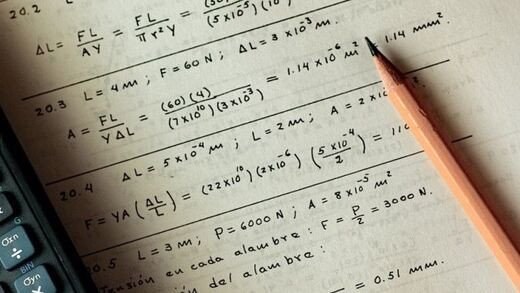 20.2
ΔL = FL/AY = FL/πr²Y = (5×10⁻⁵)(10
20.3 L = 4 m ; F = 60 N ; ΔL = 3 × 10⁻³ m.
A = FL/YΔL = (60)(4)/(7×10¹⁰)(3×10⁻³) = 1.14 × 10⁻⁶ m² = 1.14 mm².
20.4 ΔL = 5×10⁻⁴ m ; L = 2 m ; A = 2×10
F = YA(ΔL/L) = (22×10¹⁰)(2×10⁻⁶)(5×10⁻⁴/2) = 110
20.5 L = 3 m ; P = 6000 N ; A = 8×10⁻⁵ m²
Tensión en cada alambre : F = P/2 = 3000 N.
del alambre :
= 0.51 mm.
σxn
σxn
÷
BIN